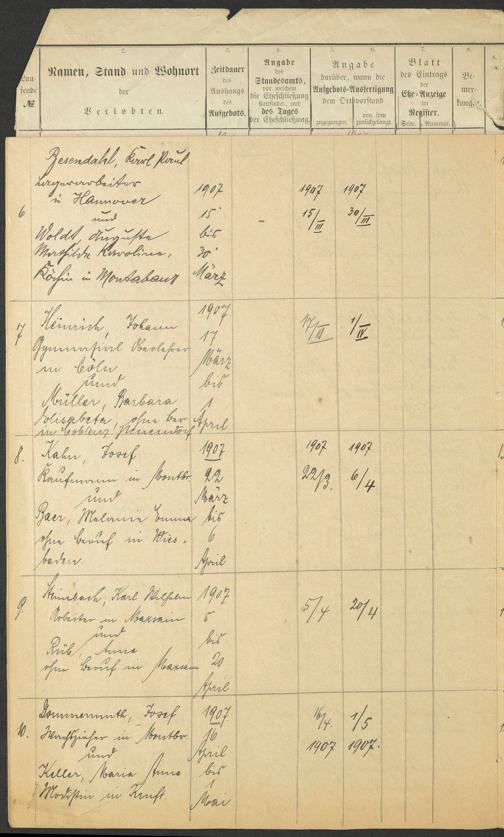 Lau-
fende
№
2.
Namen, Stand und Wohnort
der
Verlobten.
3.
Zeitdauer
des
Aushangs
des
Aufgebots.
4.
Angabe
des
Standesamts,
vor welchem
die Eheschließung
stattfindet, und
des Tages
der Eheschließung.
5.
6.
Angabe
darüber, wann die
Aufgebots-Ausfertigung
dem Ortsvorstand
zugegangen.
von ihm
zurückgelangt.
7.
Blatt
des Eintrags
der
Ehe-Anzeige
im
Register.
Seite.
Nummer.
8.
Be-
mer-
kungen.
6
Besendahl, Karl Paul
Lagerarbeiter
in Hannover
und
Woldt, Auguste
Mathilde Karoline,
Köchin in Montabaur
1907
15
bis
30
März
-
1907
15/III
1907
30/III
7
Heinrich, Johann
Gymnasial Oberlehrer
in Cöln
und
Müller, Barbara
Elisabeta, ohne Ber.
in Coblenz
1907
17
März
bis
1
April
17/III
1/IV
8.
Kahn, Josef
Kaufmann in Montbr.
und
Baer, Melanie Emma
ohne Beruf in Wies-
baden.
1907
22
März
bis
6
April
1907
22/3.
1907
6/4
9.
Steinbach, Karl Wilhelm
Arbeiter in Maxsain
und
Rüb, Anna
ohne Beruf in Maxsain
1907
5
bis
20
April
5/4
20/4
10.
Dommermuth, Josef
Wachszieher in Montbr.
und
Keller, Maria Anna
Modistin in
1907
16
April
bis
1
Mai
16/4.
1907
1/5
1907.